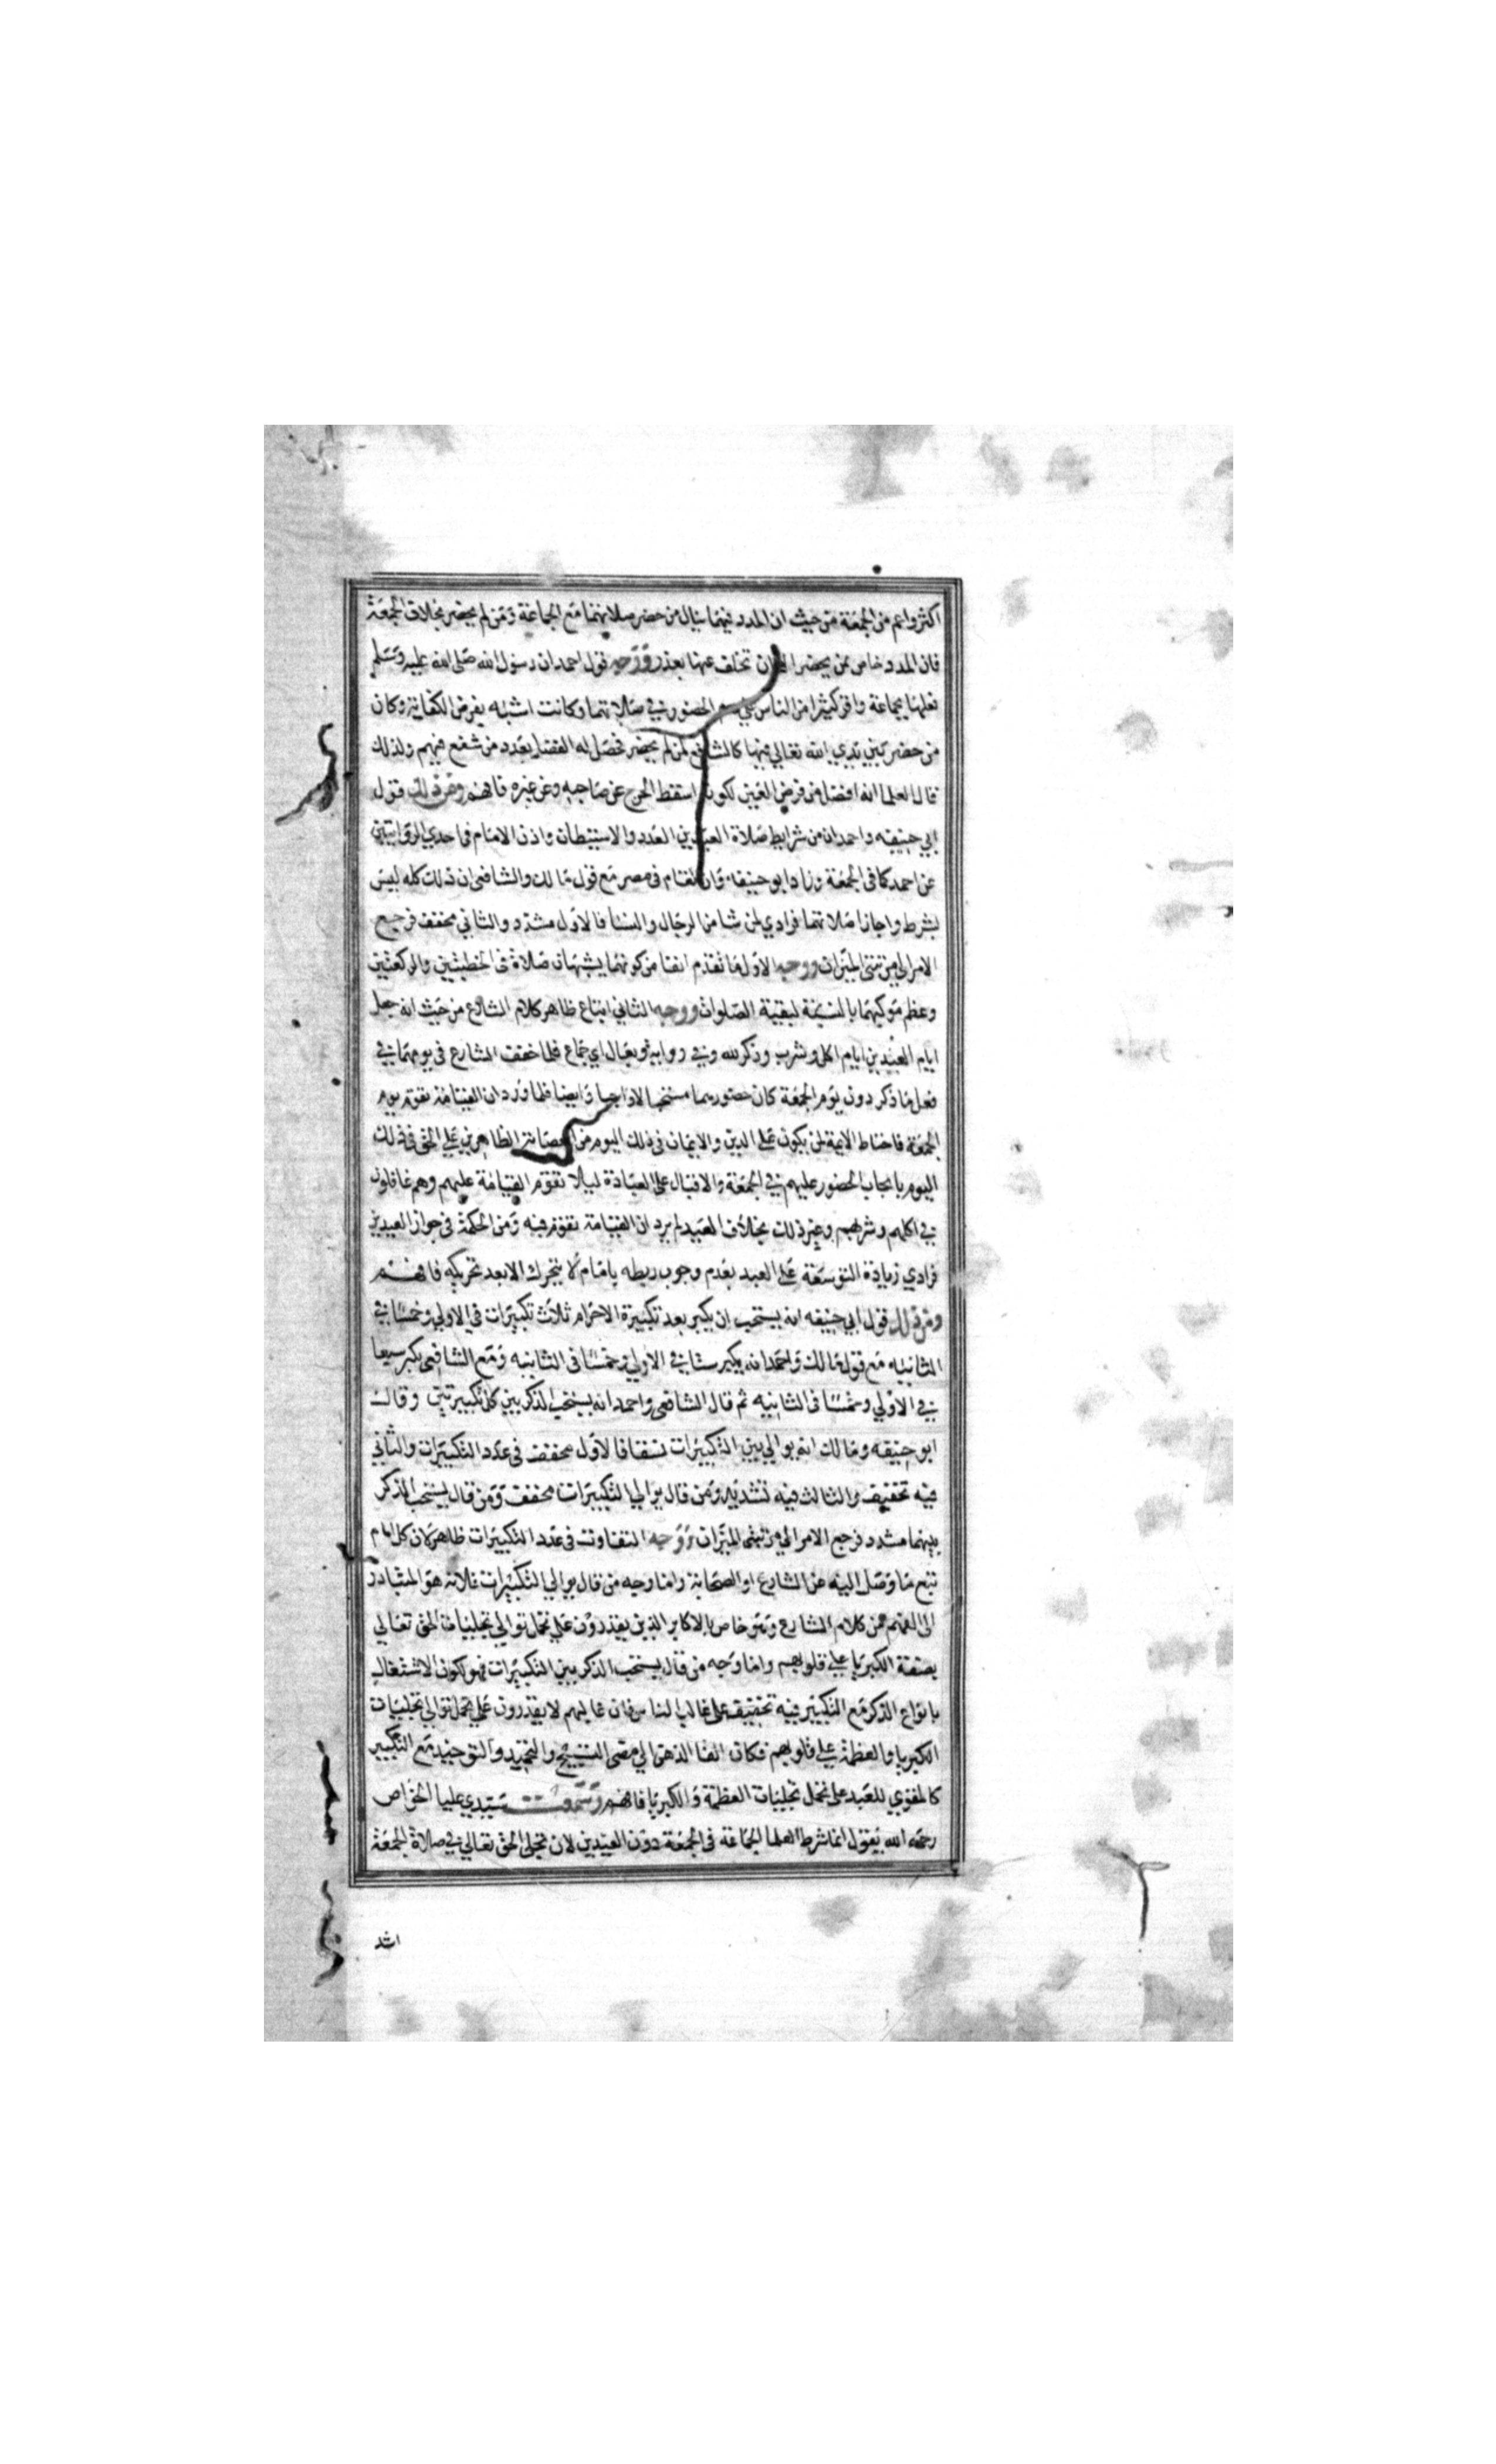 اكثر واعم من الجمعة من حيث ان المدد فيهما ينال من حضر صلاتهما مع الجماعة ومن لم يحضر بخلاف الجمعة
فان المدد خاص بمن يحضر تخلف عنها بعذر ووجه قول احمد ان رسول الله صلى الله عليه وسلم
فعلهما بجماعة واقر كثيرا من الناس علي الحضور في صلاتهما وكانت اشبه بفرض الكفاية وكان
من حضر بين يدي الله تعالي فيها كالشافع لمن لم يحضر فحصل له الفضل بعدد من شفع فيهم ولذلك
قال العلما انه افضل من فرض العين لكونه اسقط الحرج عن صاحبه وعن غيره فافهم ومن ذلك قول
ابي حنيفه واحمد ان من شرايط صلاة العيدين العدد والاستيطان واذن الامام في احدي الروايتين
عن احمد كما في الجمعة وزاد ابو حنيفه وان تقام في مصر مع قول مالك والشافعي ان ذلك كله ليس
بشرط واجازا صلاتهما فرادي لمن شا من الرجال والنسا فالاول مشدد والثاني مخفف فرجع
الامر الي مرتبتي الميزان ووجه الاول ما تقدم انفا من كونهما يشبهان صلاة في الخطبتين والركعتين
وعظم موكبهما بالنسبة لبقية الصلوات ووجه الثاني اتباع ظاهر كلام الشارع من حيث انه جعل
ايام العيدين ايام اكل وشرب وذكر لله وفي رواية وبعال اي جماع فلما خفف الشارع في يومهما في
فعل ما ذكر دون يوم الجمعة كان حضورهما مستحبا لا واجبا وايضا فلما ورد ان القيامة تقوم يوم
الجمعة فاحتاط الايمة لمن يكون علي الدين والايمان في ذلك اليوم من العصابة الظاهرين علي الحق في ذلك
اليوم بايجاب الحضور عليهم في الجمعة والاقبال علي العبادة ليلا تقوم القيامة عليهم وهم غافلون
في اكلهم وشربهم وغير ذلك بخلاف العيد لم يرد ان القيامة تقوم فيه ومن الحكمة في جواز العيدين
فرادي زيادة التوسعة علي العبد بعدم وجوب ربطه بامام لا يتحرك الا بعد تحريكه فافهم
ومن ذلك قول ابي حنيفه انه يستحب ان يكبر بعد تكبيرة الاحرام ثلاث تكبيرات في الاولي وخمسا في
الثانيه مع قول مالك واحمد انه يكبر ستا في الاولي وخمسا في الثانيه ومع الشافعي يكبر سبعا
في الاولي وخمسا في الثانيه ثم قال الشافعي واحمد انه يستحب الذكر بين كل تكبيرتين وقال
ابو حنيفه ومالك انه يوالي بين التكبيرات نسقا فالاول مخفف في عدد التكبيرات والثاني
فيه تخفيف والثالث فيه تشديد ومن قال يوالي التكبيرات مخفف ومن قال يستحب الذكر
بينهما مشدد فرجع الامر الي مرتبتي الميزان ووجه التفاوت في عدد التكبيرات ظاهر فان كل امام
تبع ما وصل اليه عن الشارع او الصحابة واما وجه من قال يوالي التكبيرات فلانه هو المتبادر
الي الفهم من كلام الشارع وهو خاص بالاكابر الذين يقدرون علي تحمل توالي تجليات الحق تعالي
بصفة الكبريا علي قلوبهم واما وجه من قال يستحب الذكر بين التكبيرات فهو لكون الاشتغال
بانواع الذكر مع التكبير فيه تخفيف علي غالب الناس فان غالبهم لا يقدرون علي تحمل توالي تجليات
الكبريا والعظمة علي قلوبهم فكان الفا الذهن الي معني التسبيح والتحميد والتوحيد مع التكبير
كالمقوي للعبد علي تحمل تجليات العظمة والكبريا فافهم وسمعت سيدي عليا الخواص
رحمه الله يقول انما شرط العلما الجماعة في الجمعة دون العيدين لان تجلي الحق تعالي في صلاة الجمعة
اشد